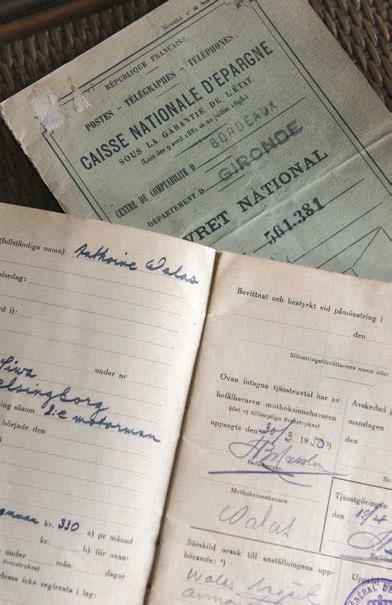 RÉPUBLIQUE FRANÇAISE
POSTES - TÉLÉGRAPHES - TÉLÉPHONES
CAISSE NATIONALE D'EPARGNE
SOUS LA GARANTIE DE L'ÉTAT
(Lois des 9 avril 1881 et 20 juillet 1895.)
CENTRE DE COMPTABILITÉ D BORDEAUX
DÉPARTEMENT D GIRONDE
VRET NATIONAL
561.381
(fullständiga namn) Walas
elsedag:
rd i):
Siwa under nr
elsingborg
ing såsom 2:e motorman
började den
kr. 330 a) pr månad
kr. b) för ovan-
under mån. dagar
dessa icke reglerats i lag:
Bevittnat och bestyrkt vid påmönstring i
den
Mönstringsförrättarens namn eller
Ovan intagna tjänsteavtal har av
befälhavaren mothoksinnehavaren
(det ej tillämpliga överstrykes)
uppsagts den 31/3 1950
Befälhavare.
Mothoksinnehavare.
Walas
Särskild orsak till anställningens upp-
hörande:
Walas
Avskedad
manslagen
den
Tjänstgöringen
den